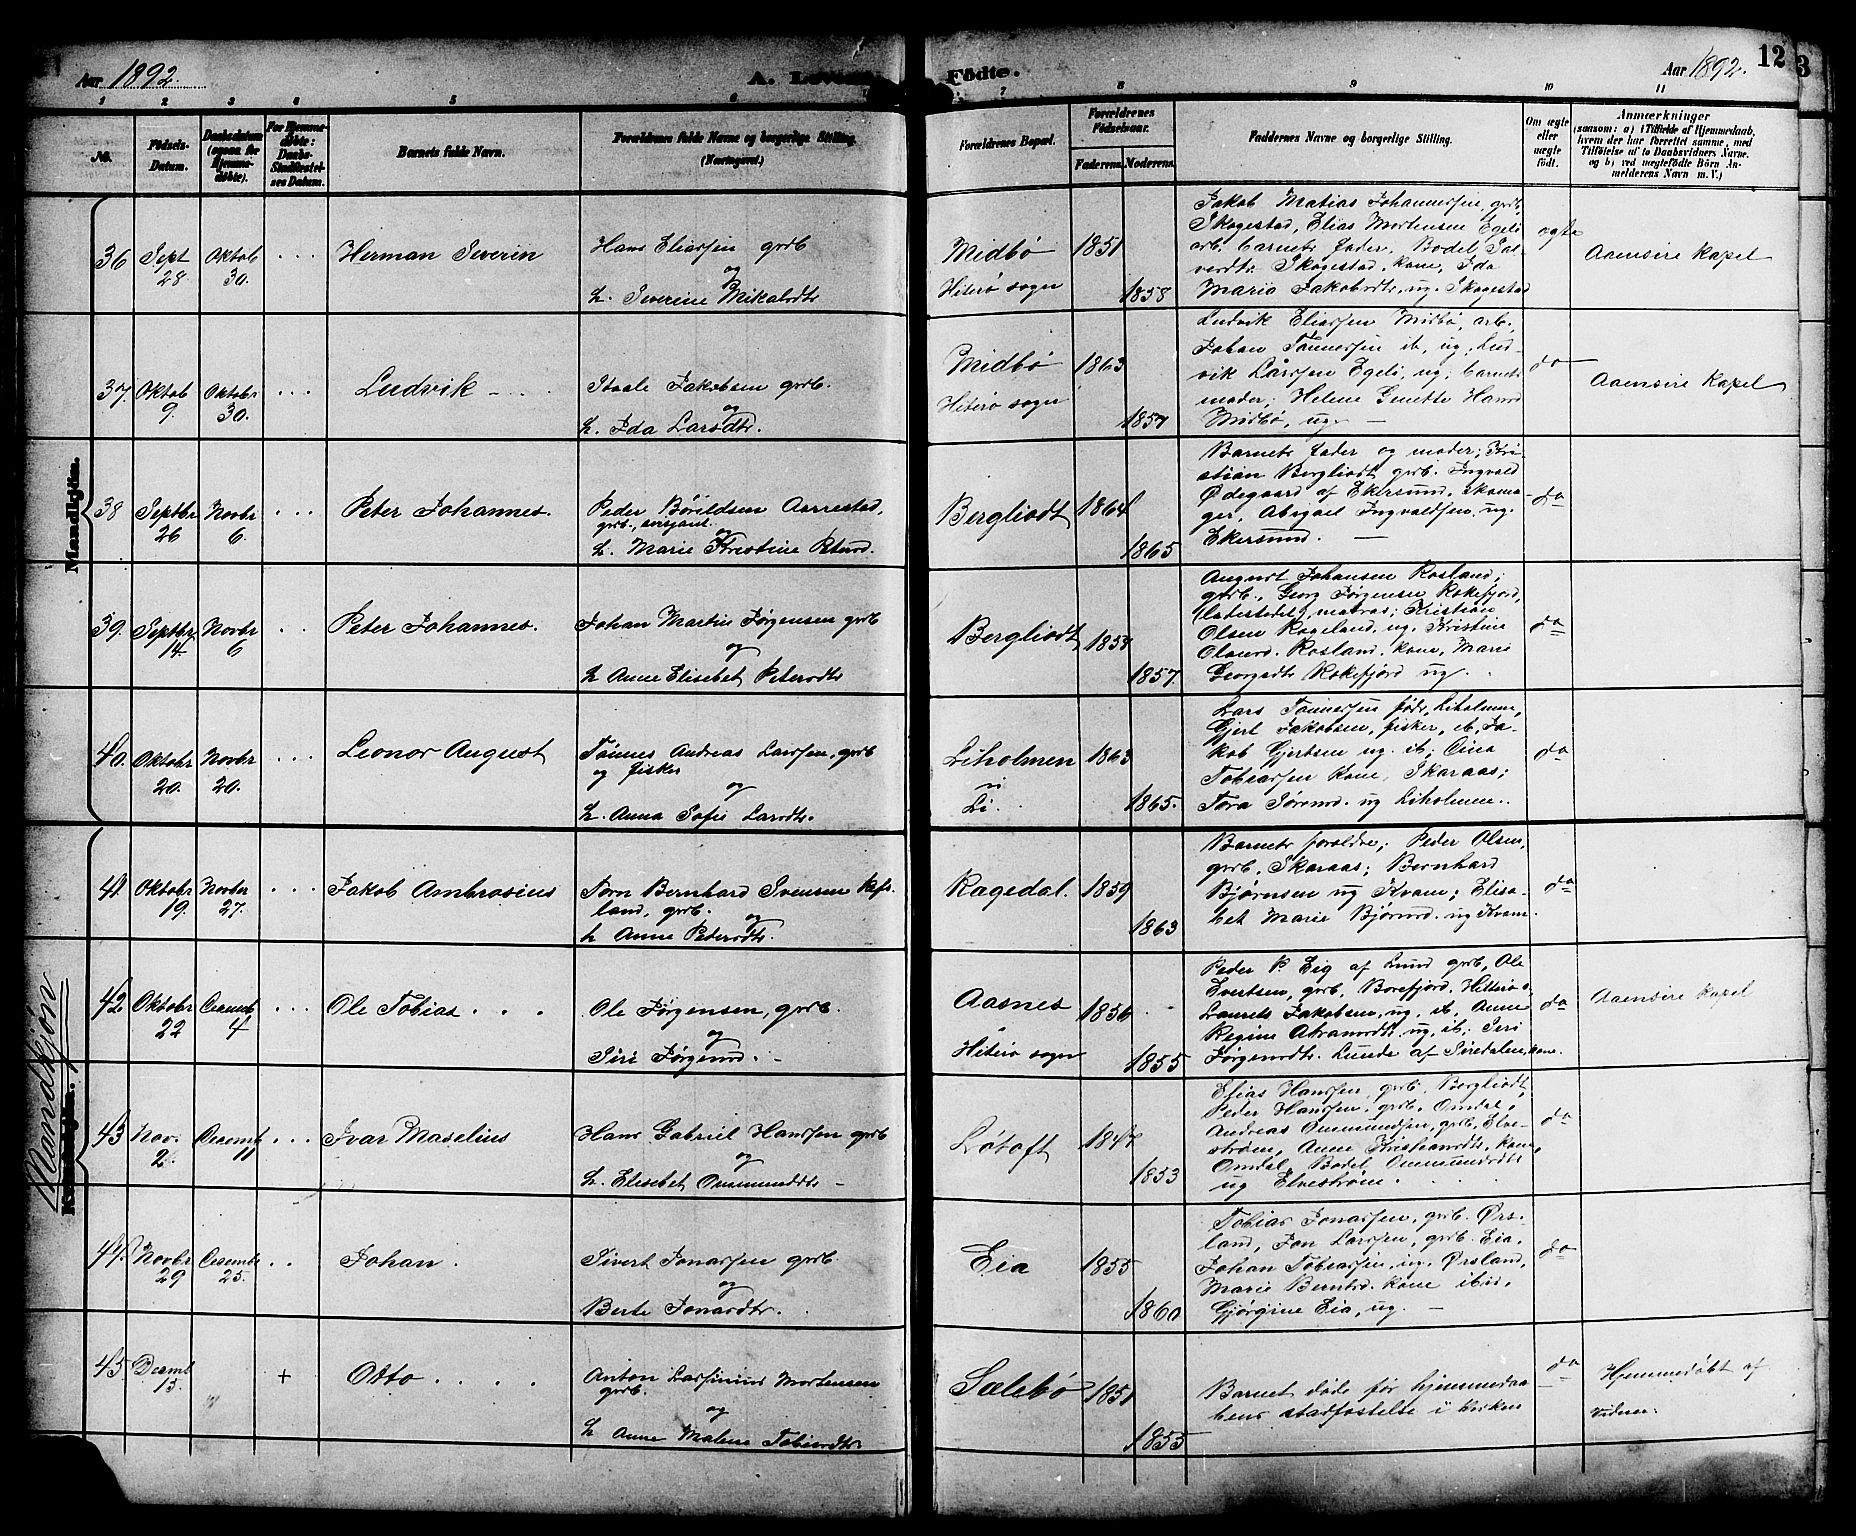 Aar 1892.
A. Levende
Födte.
Aar 1892.
12
3
1 2 3 4 5 6 7 8 9 10 11
No.
Födsels-
Datum.
Daabsdatum
(ogsaa for
Hjemme-
døbte).
For Hjemme-
døbte:
Daabs-
Stadfæstel-
ses Datum.
Barnets fulde Navn.
Forældrenes fulde Navne og borgerlige Stilling.
Forældrenes Bopæl.
Forældrenes
Fødselsaar.
Faderens.
Moderens.
Faddernes Navne og borgerlige Stilling.
Om ægte
eller
uægte
født.
Anmærkninger
(saasom: a) i Tilfælde af Hjemmedaab,
hvem der har forrettet samme, med
Tilføielse af to Daabsvidners Navne,
og b) ved uægtefødte Börn An-
melderens Navn m. V.)
Mandkjön.
36
Sept
28
Oktob
30.
Herman Severin
Hans Eliassen grdb
og
h. Severine Mikalsdtr
Midbø
Hiterø sogn
1851
1858
Jakob Matias Johannessen, grdb,
Skogestad, Elias Mortensen Egeli
arb. barnets fader, Bodel
Skogestad, kone, Ida
Maria Jakobsdtr, ug. Skogestad
ægte
Aamsire Kapel
37.
Oktob
9.
Oktobr
30.
Ludvik
Staale Jakobsen grdb.
og
h. Ida Larsdtr.
Midbø
Hiterø sogn
1863
1857
Ludvik Eliassen Midbø, arb.,
Johan Tønnessen ib, ug; Lud-
vik Larssen Egeli, ug; barnets
moder; Helene Hansd
Midbø, ug.
do
Aamsire Kapel
38
Septbr
26
Novbr
6.
Peter Johannes.
Peder Børildsen Aarrestad,
grdb., sersjant
og
h. Marie Kristine Petersd.
Bergliodt
1864
1865
Barnets fader og moder; Kri-
stian Bergliodt grdb. Ingvald
Ødegaard af Ekersund. Skoma-
ger, Abigael Ingvaldsen, ug.
Ekersund.
do
39.
Septbr
14.
Novbr
6
Peter Johannes.
Johan Martin Jørgensen grdb
og
h Anne Elisebet Petersdtr
Bergliodt
1858
1857.
August Johansen Rosland;
grdb., Georg Jørgensen Rekefjord,
(ladestedet) matros; Kristian
Olsen Rageland, ug, Kristine
Olausd. Rosland. kone, Marie
Georgsdtr Rekefjord ug.
do
40.
Oktobr
20.
Novbr
20.
Leonor August
Tønnes Andreas Larssen, grdb
og fisker
og
h. Anna Sofie Larsdtr.
Liholmen
i
Li.
1863
1865.
Lars Tønnessen føder, Liholmen,
Gjert Jakobsen, fisker, ib, Ja-
kob Gjertsen ug. ib;
Tobiassen kone, Skaraas;
Tora Sørensd. ug Liholmen.
do
41.
Oktobr
19.
Novbr
27.
Jakob Ambrosius
Torn Bernhard Svensen Refs-
land, grdb.
og
h Anne Petersdtr.
Ragedal.
1859
1863
Barnets foreldre; Peder Olsen,
grdb, Skaraas; Bernhard
Bjørnsen ug Kvam; Elisa-
bet Marie Bjørnsd. ug Kvam.
do
Mandkjön
Kvindekjön.
42.
Oktobr
22
Decemb
4
Ole Tobias
Ole Jørgensen, grdb.
og
Siri Jørgensd.
Aasnes
Hiterø sogn
1856
1855
Peder P Eig af Lund grdb, Ole
Evertsen, grdb, Borefjord, Hitterø s.
Laurets Jakobsen, ug, ib, Anne
Regine Abramsdtr, ug, ib; Siri
Jørgensdtr. Lunde af Siredalen, kone.
do
Aamsire Kapel
43
Nov.
2.
Decemb
11
Ivar Maselius
Hans Gabriel Hanssen grdb
og
h. Elisebet Ommundsdtr
Løtoft
1853
Elias Hanssen, grdb. Bergliodt,
Peder Hanssen, grdb, Omdal,
Andreas Ommundsen, grdb, Elve-
strøm, Anne Kristiansdtr, kone,
Omdal, Bodel Ommundsdtr
ug Elvestrøm.
do
44.
Novbr
29
Decembr
25.
Johan
Sivert Jonassen grdb.
og
Berte Jonasdtr.
Eia
1855
1860
Tobias Jonassen, grdb. Ørs-
land, Jon Larssen, grdb. Eia,
Johan Tobiassen, ug, Ørsland,
Marie Berntsd. kone ibid,
Gjørgine Eia, ug.
do
45
Decmb
15.
+
Otto
Anton Mortensen
grdb.
og
h Anne Malene Tobiasdtr.
Sælebø
1851
1855
Barnet døde før hjemmedaa-
bens stadfæstelse i kirken
do
Hjemmedøbt af